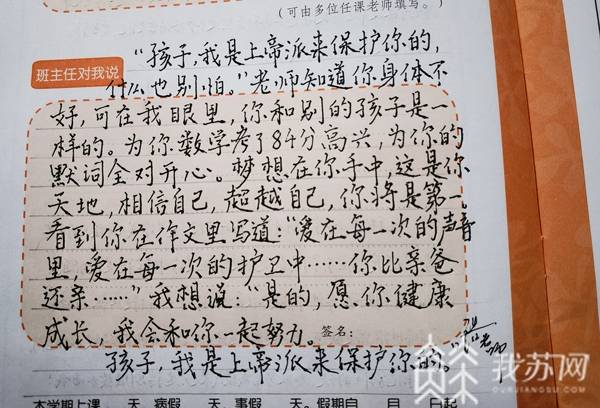 （可由多位任课老师填写。）
“孩子，我是上帝派来保护你的，
班主任对我说
什么也别怕。”老师知道你身体不
好，可在我眼里，你和别的孩子是一
样的。为你数学考了84分高兴，为你的
默词全对开心。梦想在你手中，这是你
天地，相信自己，超越自己，你将是第一。
看到你在作文里写道：“爱在每一次的声音
里，爱在每一次的护卫中……你比亲爸
还亲……”我想说：“是的，愿你健康
成长，我会和你一起努力。签名：
孩子，我是上帝派来保护你的。”
老师
我苏网
OURJIANGSU.COM
本学期上课 天 病假 天 事假 天。假期自 月 日起